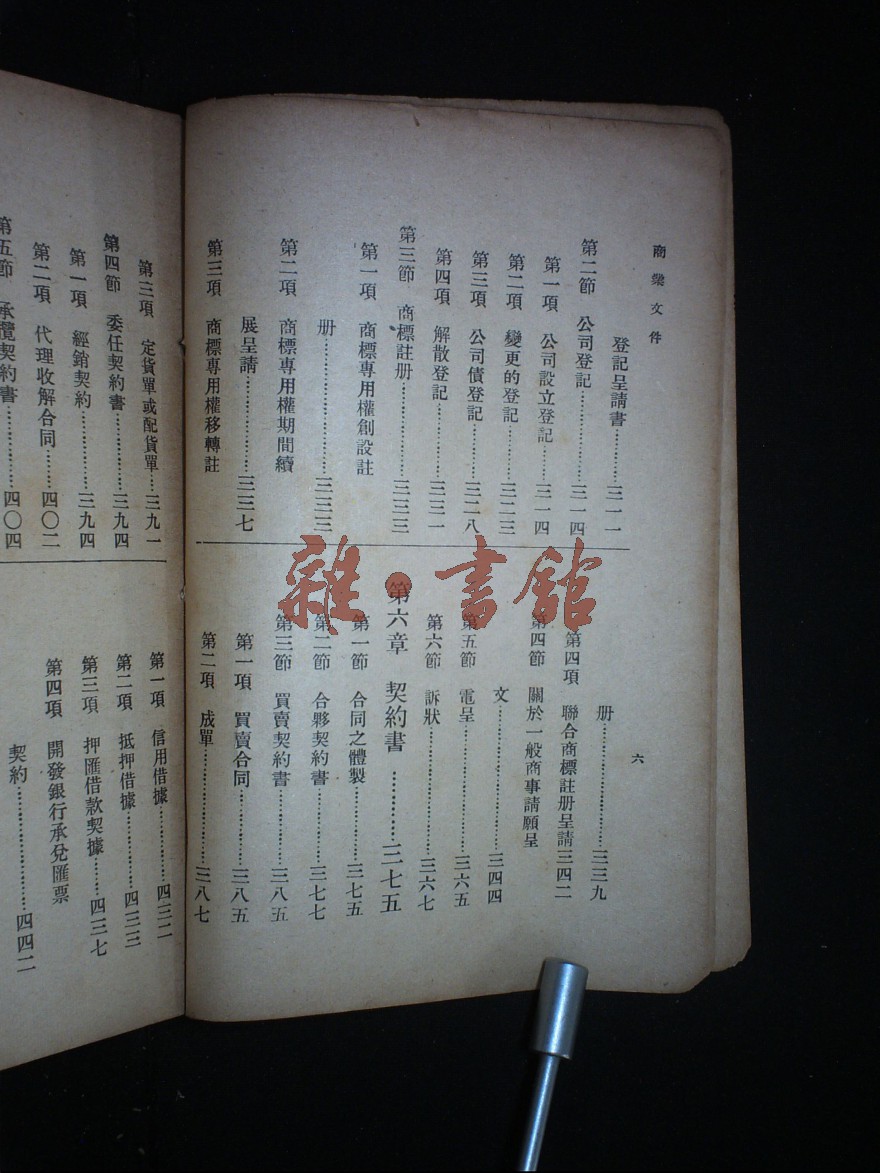 商業文件
登記呈請書…………三一一
第二節 公司登記…………三一四
第一項 公司設立登記……三一四
第二項 變更的登記………三二三
第三項 公司債登記………三二八
第四項 解散登記…………三三一
第三節 商標註册……………三三三
第一項 商標專用權創設註
册……………………三三三
第二項 商標專用權期間續
展呈請………………三三七
第三項 商標專用權移轉註
六
册……………………三三九
第四項 聯合商標註册呈請三四二
第四節 關於一般商事請願呈
文……………………三四四
第五節 電呈…………………三六五
第六節 訴狀…………………三六七
第六章 契約書…………三七五
第一節 合同之體製…………三七五
第二節 合夥契約書…………三七七
第三節 買賣契約書…………三八五
第一項 買賣合同……………三八五
第二項 成單…………………三八七
第三項 定貨單或配貨單……三九一
第四節 委任契約書…………三九四
第一項 經銷契約……………三九四
第二項 代理收解合同………四〇二
第五節 承攬契約書…………四〇四
第一項 信用借據……………四三二
第二項 抵押借據……………四三三
第三項 押匯借款契據………四三七
第四項 開發銀行承兌匯票
契約…………………四四二
雜·書館